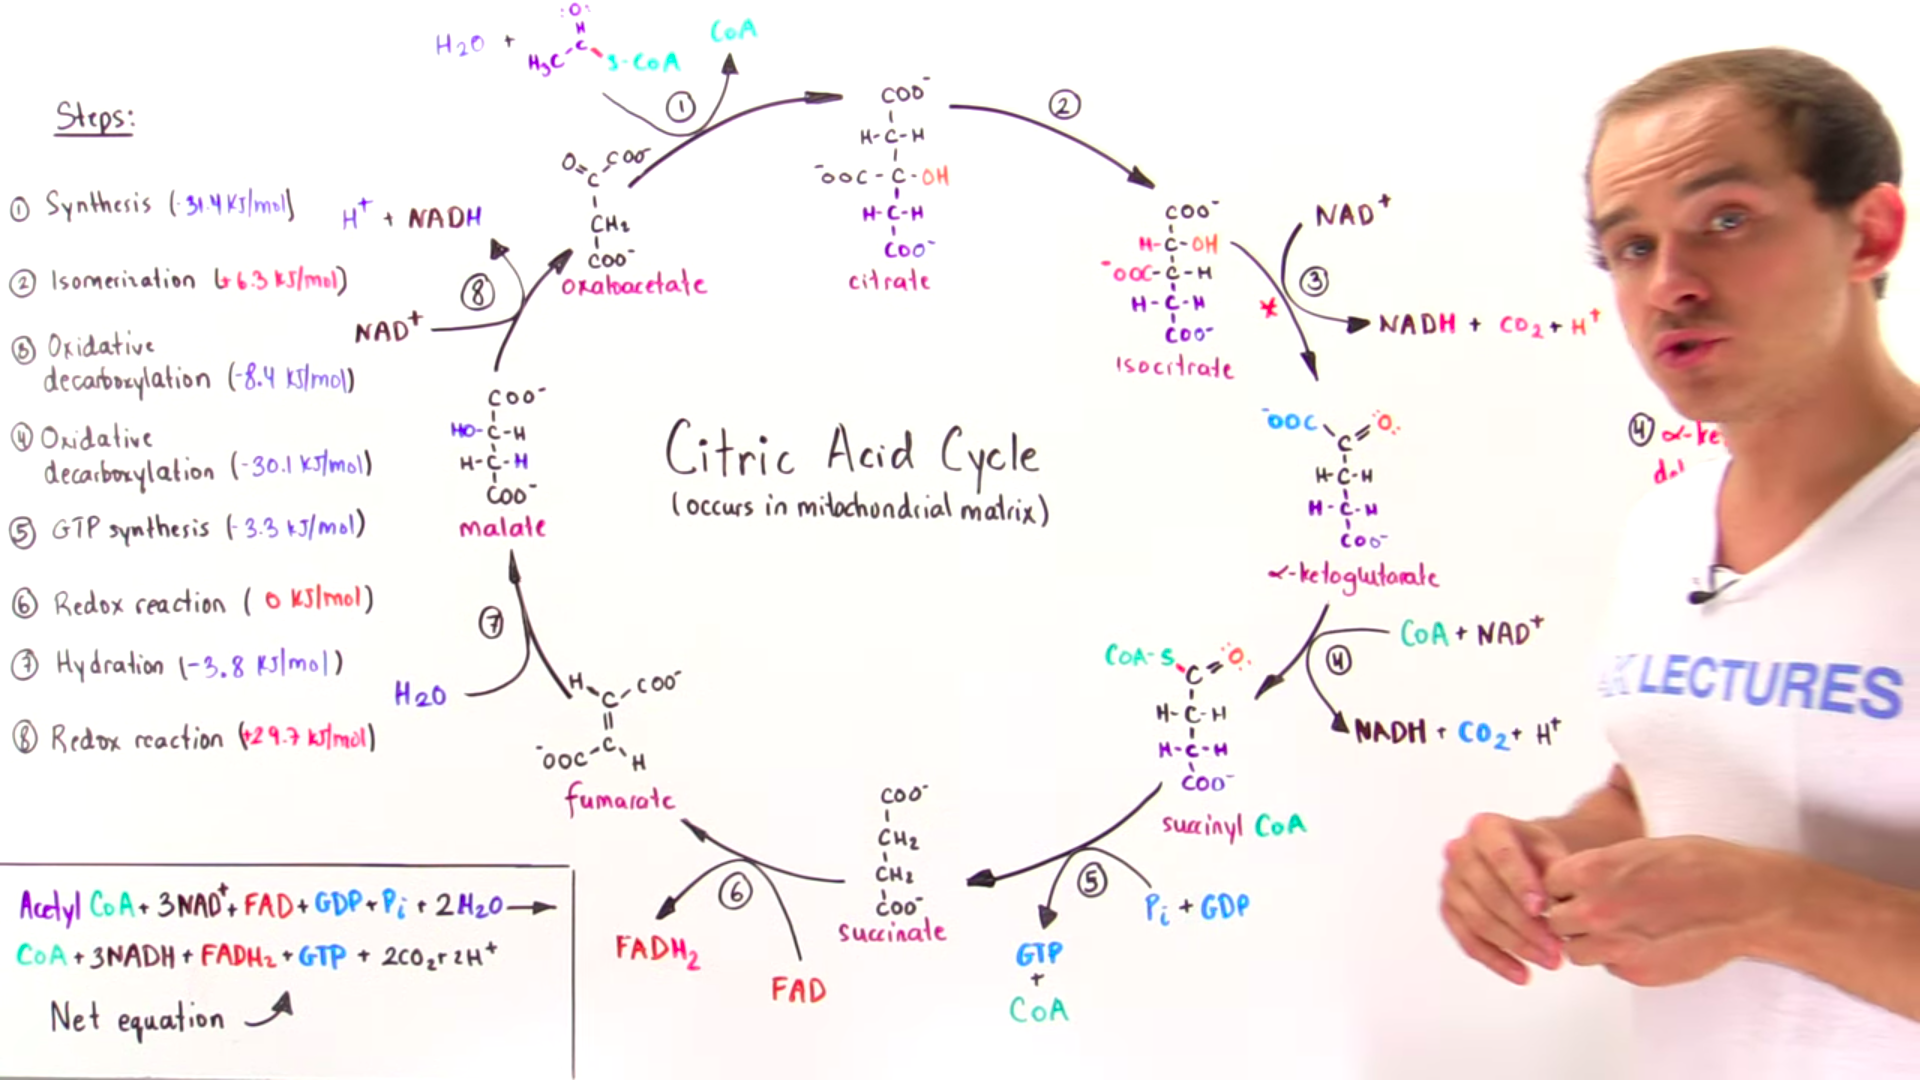 Steps:
① Synthesis (-31.4 KJ/mol)
② Isomerization (+6.3 KJ/mol)
③ Oxidative
decarboxylation (-8.4 KJ/mol)
④ Oxidative
decarboxylation (-30.1 KJ/mol)
⑤ GTP synthesis (-3.3 KJ/mol)
⑥ Redox reaction ( 0 KJ/mol)
⑦ Hydration (-3.8 KJ/mol)
⑧ Redox reaction (+29.7 KJ/mol)
Acetyl CoA + 3NAD⁺ + FAD + GDP + Pi + 2H₂O
CoA + 3NADH + FADH₂ + GTP + 2CO₂ + 2H⁺
Net equation
Citric Acid Cycle
(occurs in mitochondrial matrix)
:O:
H₂O +
H
C
H₃C
S-CoA
CoA
①
O
COO⁻
C
CH₂
COO⁻
oxaloacetate
COO⁻
H-C-H
⁻OOC-C-OH
H-C-H
COO⁻
citrate
②
COO⁻
H-C-OH
⁻OOC-C-H
H-C-H
COO⁻
Isocitrate
NAD⁺
③
NADH + CO₂ + H⁺
⁻OOC
C
O
H-C-H
H-C-H
COO⁻
α-ketoglutarate
④ α-ke
CoA + NAD⁺
④
NADH + CO₂ + H⁺
CoA-S
C
O
H-C-H
H-C-H
COO⁻
succinyl CoA
⑤
Pi + GDP
GTP
+
CoA
COO⁻
CH₂
CH₂
COO⁻
succinate
⑥
FADH₂
FAD
H
C
COO⁻
⁻OOC
C
H
fumarate
⑦
H₂O
COO⁻
HO-C-H
H-C-H
COO⁻
malate
⑧
NAD⁺
H⁺ + NADH
LECTURES